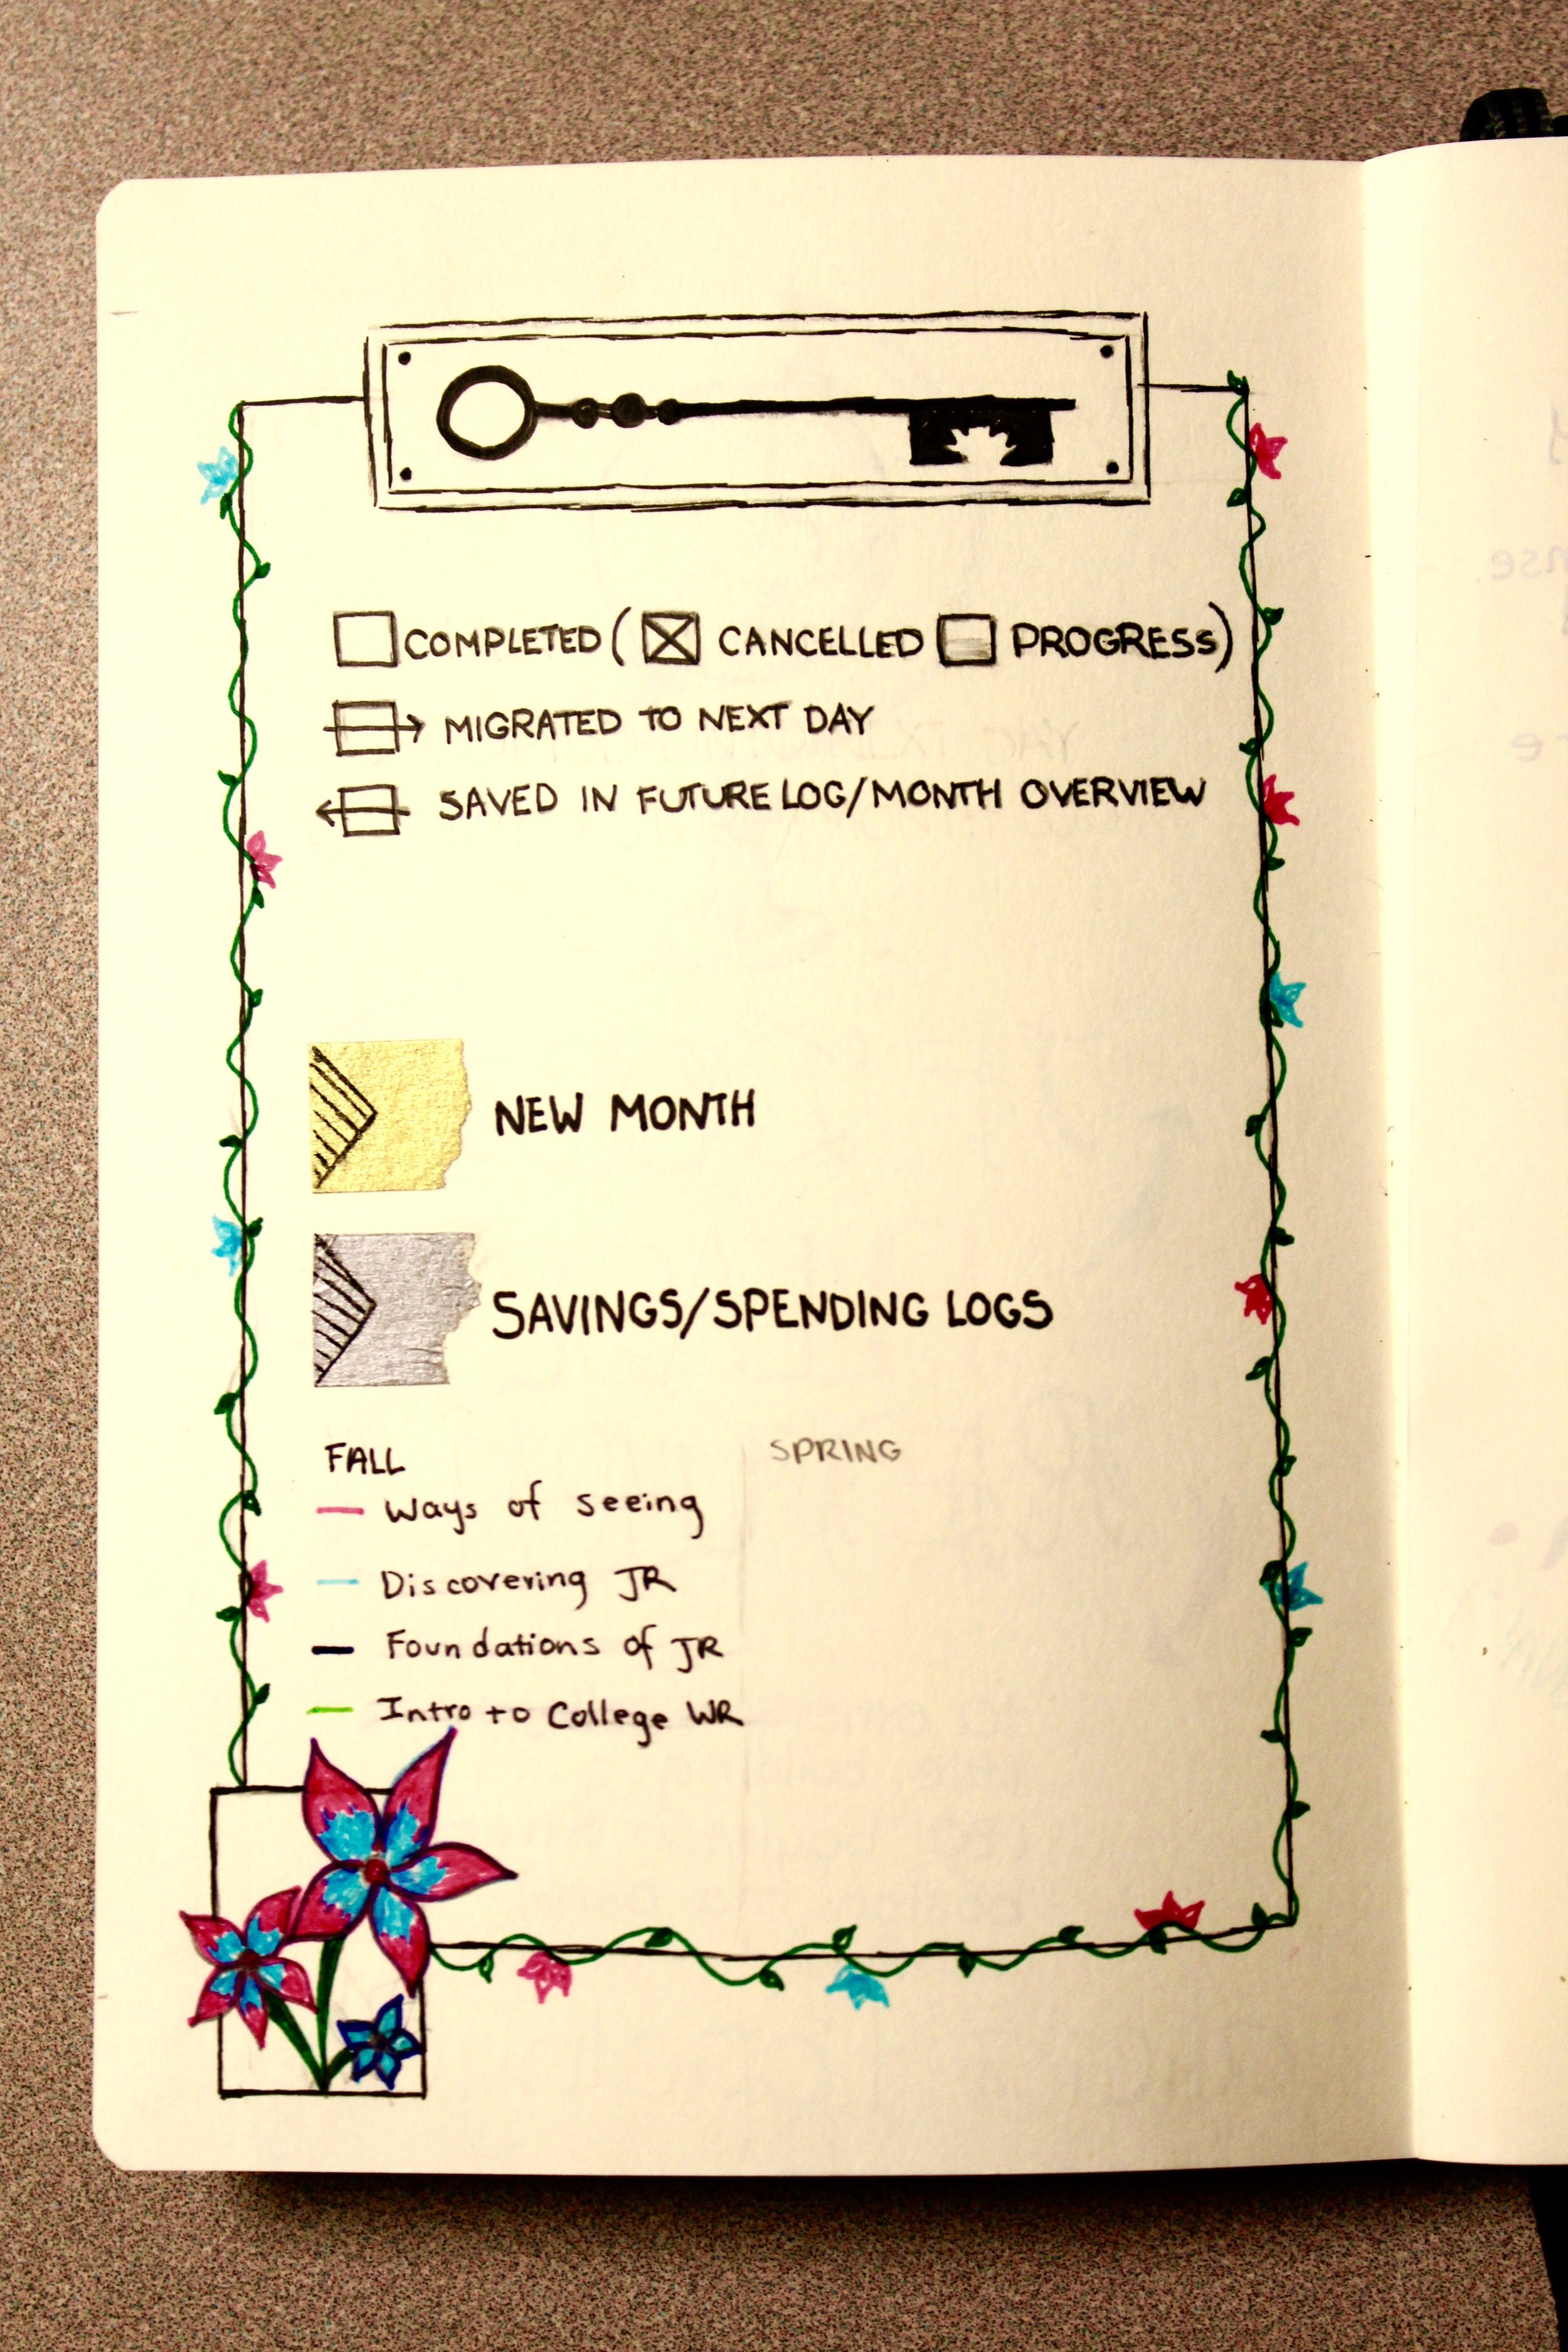 COMPLETED ( CANCELLED PROGRESS)
MIGRATED TO NEXT DAY
SAVED IN FUTURE LOG/MONTH OVERVIEW
NEW MONTH
SAVINGS/SPENDING LOGS
FALL
Ways of seeing
Discovering JR
Foundations of JR
Intro to College WR
SPRING